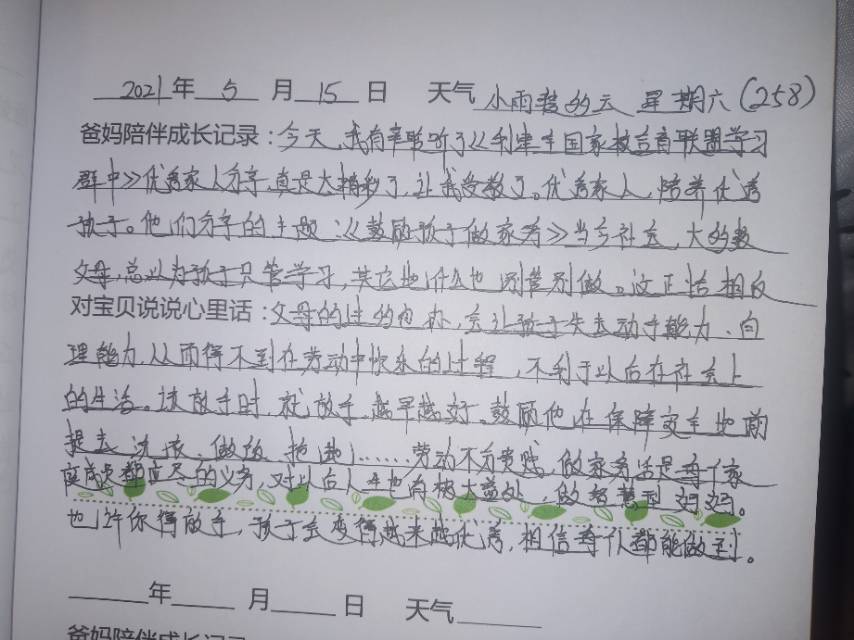 2021年5月15日 天气小雨转多云 星期六(258)
爸妈陪伴成长记录:今天,我有幸聆听了《利津车国家教育联盟学习
群中》优秀家人分享,真是太精彩了,让我受教了。优秀家人,培养优秀
孩子。他们分享的主题:《鼓励孩子做家务》当今社会,大多数
父母,总以为孩子只管学习,其它地什么也别管别做。这正恰相反
对宝贝说说心里话:父母的过多包办,会让孩子失去动手能力、自
理能力,从而得不到在劳动中快乐的过程,不利于以后在社会上
的生活。该放手时,就放手,越早越好。鼓励他在保障安全地前
提去洗衣、做饭、拖地……劳动不分贵贱,做家务活是每个家
庭成员都应尽的义务,对以后人生也有极大益处,做智慧型妈妈。
也许你得放手,孩子会变得越来越优秀,相信每个人都能做到。
年 月 日 天气
爸妈陪伴成长记录